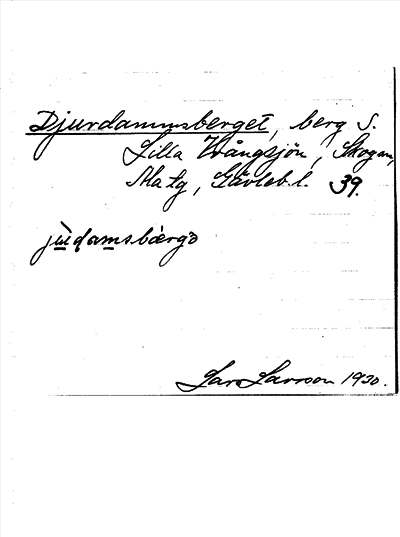 Djurdammsberget, berg S.
Lilla Vrångsjön, Skogen,
Ala tg, Gävleb. l. 39.
jùdamsbærgə
Lars Larsson 1930.